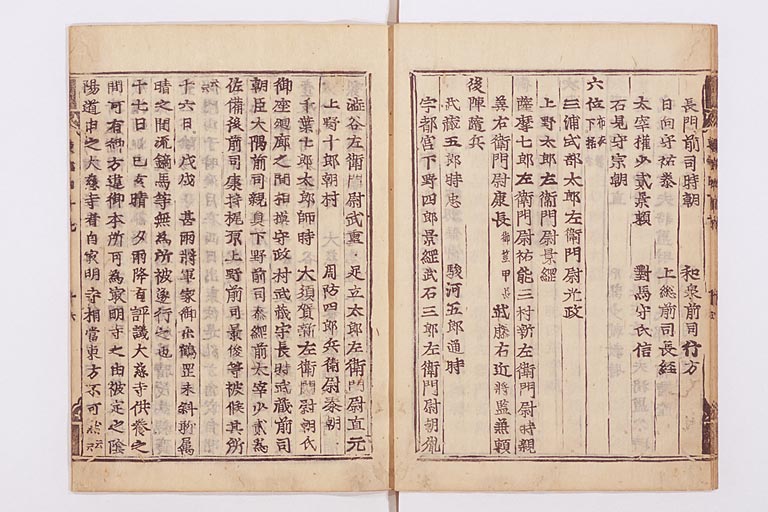 長門前司時朝 和泉前司行方
日向守祐泰 上総前司長経
太宰権少貳景頼 對馬守氏信
石見守宗朝
六位 布衣 下括
三浦式部太郎左衛門尉光政
上野太郎左衛門尉景経
薩摩七郎左衛門尉祐能三村新左衛門尉時親
右衛門尉康長 武藤右近将監兼頼
後陣随兵
武藏五郎時忠 駿河五郎通時
宇都宮下野四郎景経武石三郎左衛門尉朝胤
澁谷左衛門尉武重 足立太郎左衛門尉直元
上野十郎朝村 周防四郎兵衛尉泰朝
千葉七郎太郎師時 大須賀新左衛門尉朝氏
御座廻廊之間相模守政村武藏守長時武藏前司
朝臣大隅前司親員下野前司泰経前太宰少貳為
佐備後前司康持梶原上野前司景俊等被候其所
十六日戊戌甚雨将軍家御出鶴罡末斜聊属
晴之間流鏑馬等無為所被遂行之也
十七日己亥晴夕雨降有評議大慈寺供養之
間可有御方違御本所可為最明寺之由被定之陰
陽道申之大慈寺者自最明寺相當東方不可